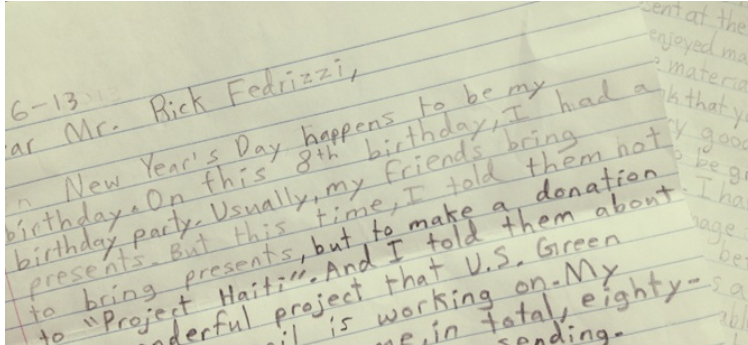 6-13
ar Mr. Rick Fedrizzi,
n New Year's Day happens to be my
birthday. On this 8th birthday, I had a
birthday party. Usually, my friends bring
presents. But this time, I told them not
to bring presents, but to make a donation
to "Project Haiti". And I told them about
nderful project that U.S. Green
il is working on. My
e, in total, eighty-
sending.
sent at the
enjoyed ma
materia
k that y
y good
be g
I ha
nage
be
s a
abl